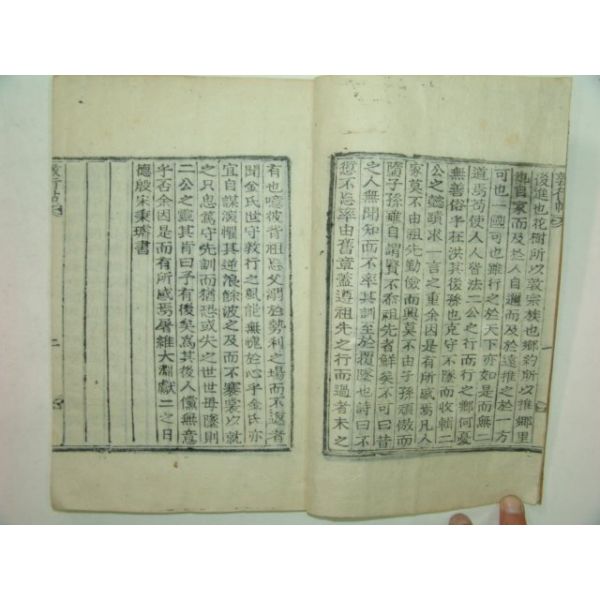 後進也花樹所以敦宗族也鄕約所以推鄕里
典自家而及於人自邇而及於遠推之於一方
可也一國可也雖行之於天下亦如是而無二
道焉苟使人人皆法二公之行而行之鄕何憂
無善俗乎在洪其後孫也克守不墜而收輯二
公之懿蹟求一言之重余因是有所感焉凡人
家莫不由祖先勤儉而興莫不由子孫頑傲而
墮子孫雖自謂賢不祖先者鮮矣不可曰昔
之人無聞知而不率其訓至於覆墜也詩曰不
愆不忘率由舊章蓋遵祖先之行而過者未之
有也噫彼背祖忘父溺於勢利之場而不返者
聞金氏世守敦行之風能無愧於心乎金氏亦
宜自謀演懼其逆浪餘波之及而不褰裳以就
之只思篤守先訓而猶恐或失之世世毋墜則
二公之靈其肯曰予有後矣爲其後人儻無意
乎否余因是而有所感焉屠維大淵獻二之日
德殷宋秉璿書
二